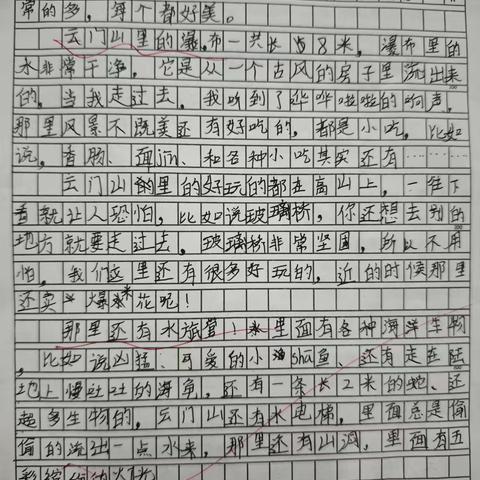 常的多，每个都好美。
云门山里的瀑布一共长58米，瀑布里的
水非常干净，它是从一个古风的房子里流出来
的，当我走过去，我听到了哗哗啦啦的响声，
那里风景不既美还有好吃的，都是小吃，比如
说，香肠、面筋、和各种小吃其实还有……
云门山里的好玩的都在高山上，一往下
看就让人恐怕，比如说玻璃桥，你还想去别的
地方就要走过去，玻璃桥非常坚固，所以不用
怕，我们这里还有很多好玩的，近的时候那里
还卖爆米花呢！
那里还有水族馆！里面有各种海洋生物
，比如说凶猛、可爱的小shā鱼，还有走在陆
地上慢吐吐的海龟，还有一条长2米的蛇、还
超多生物的，云门山还有水电梯，里面总是偷
偷的流出一点水来，那里还有山洞，里面有五
彩缤纷的灯光